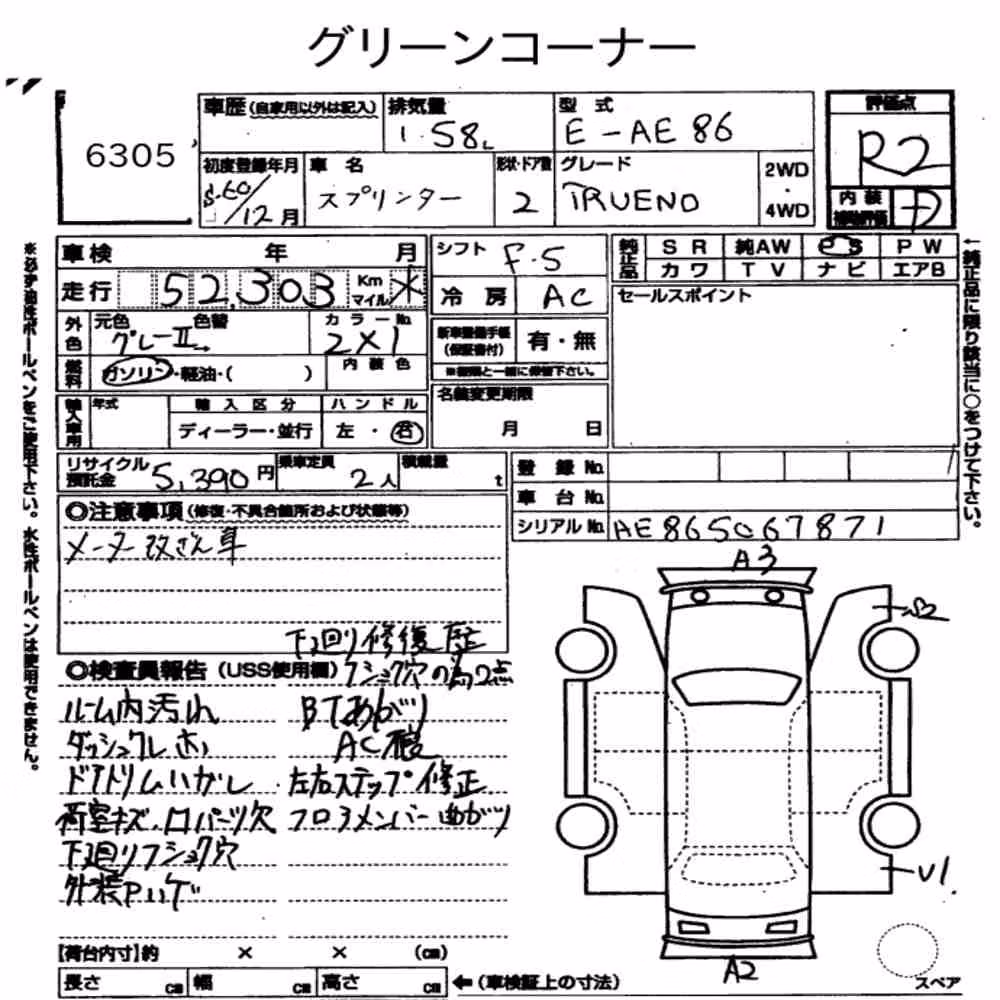 グリーンコーナー
6305
車歴(自家用以外は記入) 排気量 1.58L 型式 E-AE86 評価点 R2
初度登録年月 S-60/12月 車名 スプリンター 形状・ドア数 2 グレード TRUENO 2WD・4WD 内装補助評価 D
※必ず油性ボールペンをご使用下さい。水性ボールペンは使用できません。
←純正品に限り該当に○をつけて下さい。
車検 年 月 シフト F-5 純正品 SR 純AW PS PW
カワ TV ナビ エアB
走行 52,303 Km マイル * 冷房 AC セールスポイント
外色 元色 グレーII→ 色替 カラーNo. 2X1 新車整備手帳(保証書付) 有・無
燃料 ガソリン・軽油・( ) 内装色 ※車両と一緒に保管下さい。
輸入車用 年式 輸入区分 ハンドル 名義変更期限
ディーラー・並行 左・右 月 日
リサイクル預託金 5,390円 乗車定員 2人 積載量 t 登録No.
車台No.
◎注意事項(修復・不具合箇所および状態等) シリアルNo. AE865067871
メーター改ざん車
A3
下廻り修復歴
◎検査員報告(USS使用欄) フショク穴の為02点
ルーム内汚れ BTあがり
ダッシュワレ大 AC機
ドアトリムハガレ 左右ステップ修正
荷室キズ、ロパーツ欠 フロアメンバー曲がり
下廻りフショク穴
外装Pハゲ
U1
【荷台内寸】約 × × (cm)
A2
長さ cm 幅 cm 高さ cm ←(車検証上の寸法) スペア